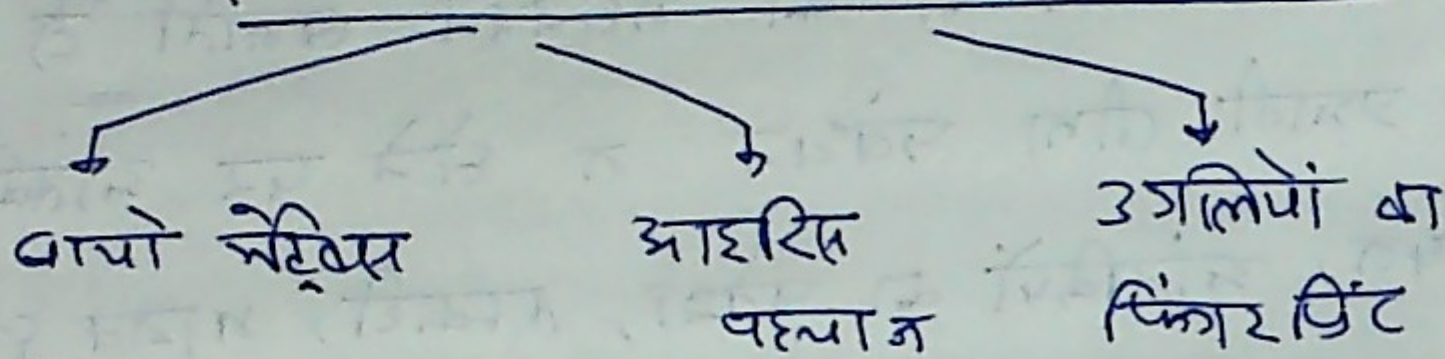 बायो मेट्रिक्स
आइरिस
पहचान
उगलियों का
फिंगर प्रिंट